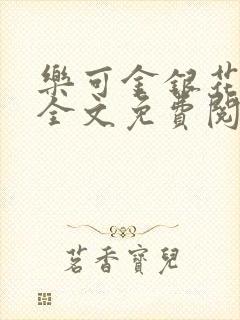 樂可金銀花
全文免費閱
茗香寶兒